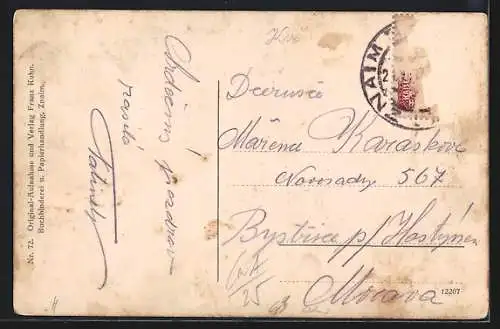 Nr. 72. Original-Aufnahme und Verlag Franz Kohn,
Buchbinderei u. Papierhandlung, Znaim.
Srdečný pozdrav
zasílá
ZNAIM
Mařena Karaskova
Novosady 567
Bystřice p/ Hostýnem
Morava
12207